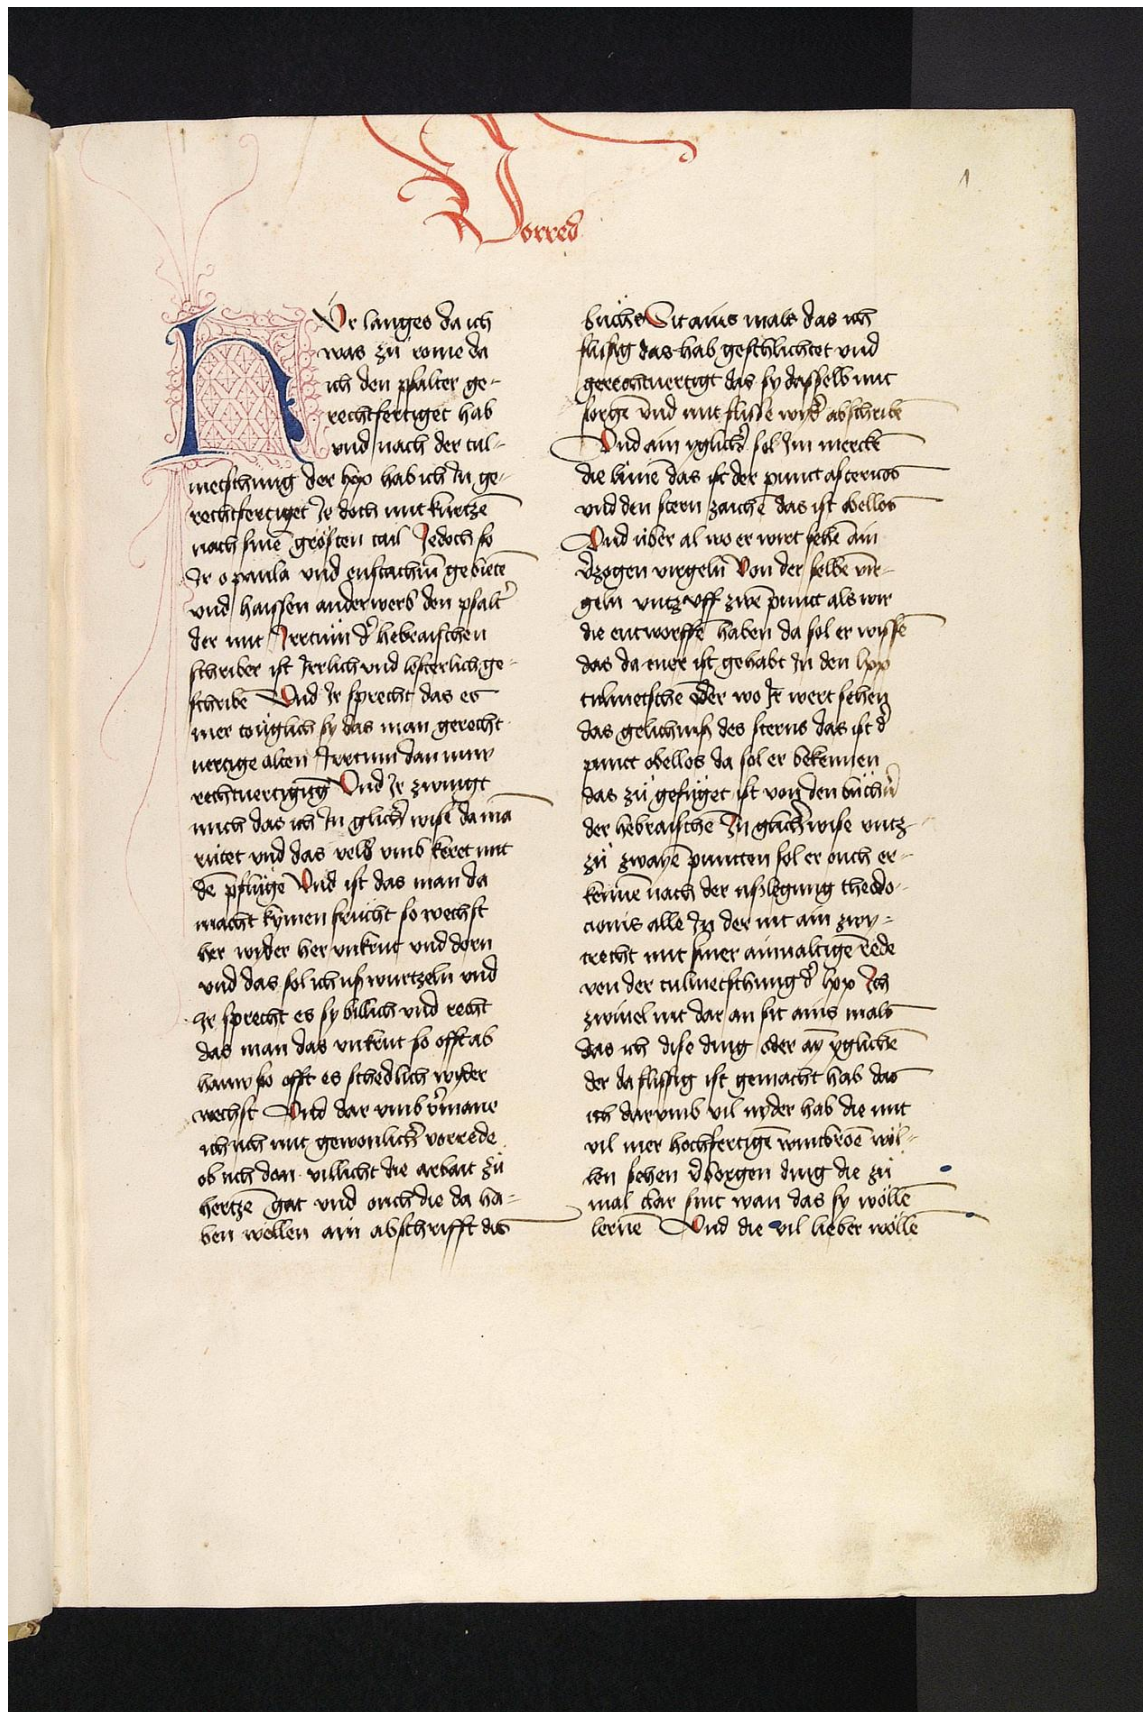 1
Vorred
NVr langes da ich
was zů rome da
ich den psalter ge-
rechtfertiget hab
vnd nach der tul-
metschung der lxx hab ich In ge-
rechtfertiget Je doch mit kurtzē
nach sinē grösten tail Jedoch so
Ir o paula vnd eustachiū gebietē
vnd haissen anderwerb den psalt̉
der mit Irrtum d̉ hebraischen
schriber ist Irrlich vnd lesterlich ge-
schribē Vnd Ir sprecht das es
mer touglich sy das man gerecht
uertige alten Irrtum dan nüw
rechtuertigūg Vnd Ir zwingt
mich das ich In glich̉ wise da mā
rütet vnd das veld vmb keret mit
dē pflůge Vnd ist das man da
macht kymen frücht so wechst
her wyder her vnkrut vnd dorn
vnd das sol ich uß wurtzeln vnd
Ir sprecht es sy billich vnd recht
das man das vnkrut so offt ab
hauw so offt es schedlich wyder
wechst Vnd dar vmb v̉mane
ich üch mit gewonlich̉ vorrede
ob üch den villicht die arbait zů
hertzē gat vnd ouch die da ha-
ben wellen ain abschrifft dis
bůchs Sit ains mals das ich
flissig das hab geschlichtet vnd
gerechtuertigt das sy dasselb mit
sorge vnd mit flisse wyd̉ abschribē
Vnd ain yglich̉ sol Im merckē
die linien das ist der punct astericos
vnd den stern zaichē das ist obellos
Vnd über al wo er wirt sehē ain
v̉zogen virgeln Von der selbē vir-
geln vntz vff zwē punct als wir
die entworffē haben da sol er wissē
das da mer ist gehabt In den lxx
tulmetschē Oder wo Ir wert sehen
das gelichnuß des sterns das ist d̉
punct obellos da sol er bekennen
das zů gefüget ist von den büch̉n
der hebraischē In glich̉ wise vntz
zů zwayē puncten sol er ouch er-
kennē nach der ußlegung theodo-
cionis alle In der nit ain zwy-
trecht mit siner ainualtigē rede
von der tulmetschung d̉ lxx Ich
zwiuel nit dar an sit ains mals
das ich dise ding oder ay̅ yglichē
der da flissig ist gemacht hab das
ich darvmb vil nyder hab die mit
vil mer hochfertigē wintbroē wöl-
len sehen v̉borgen ding die zů
mal clar sint wan das sy wöllē
lernē Vnd die vil lieber wöllē